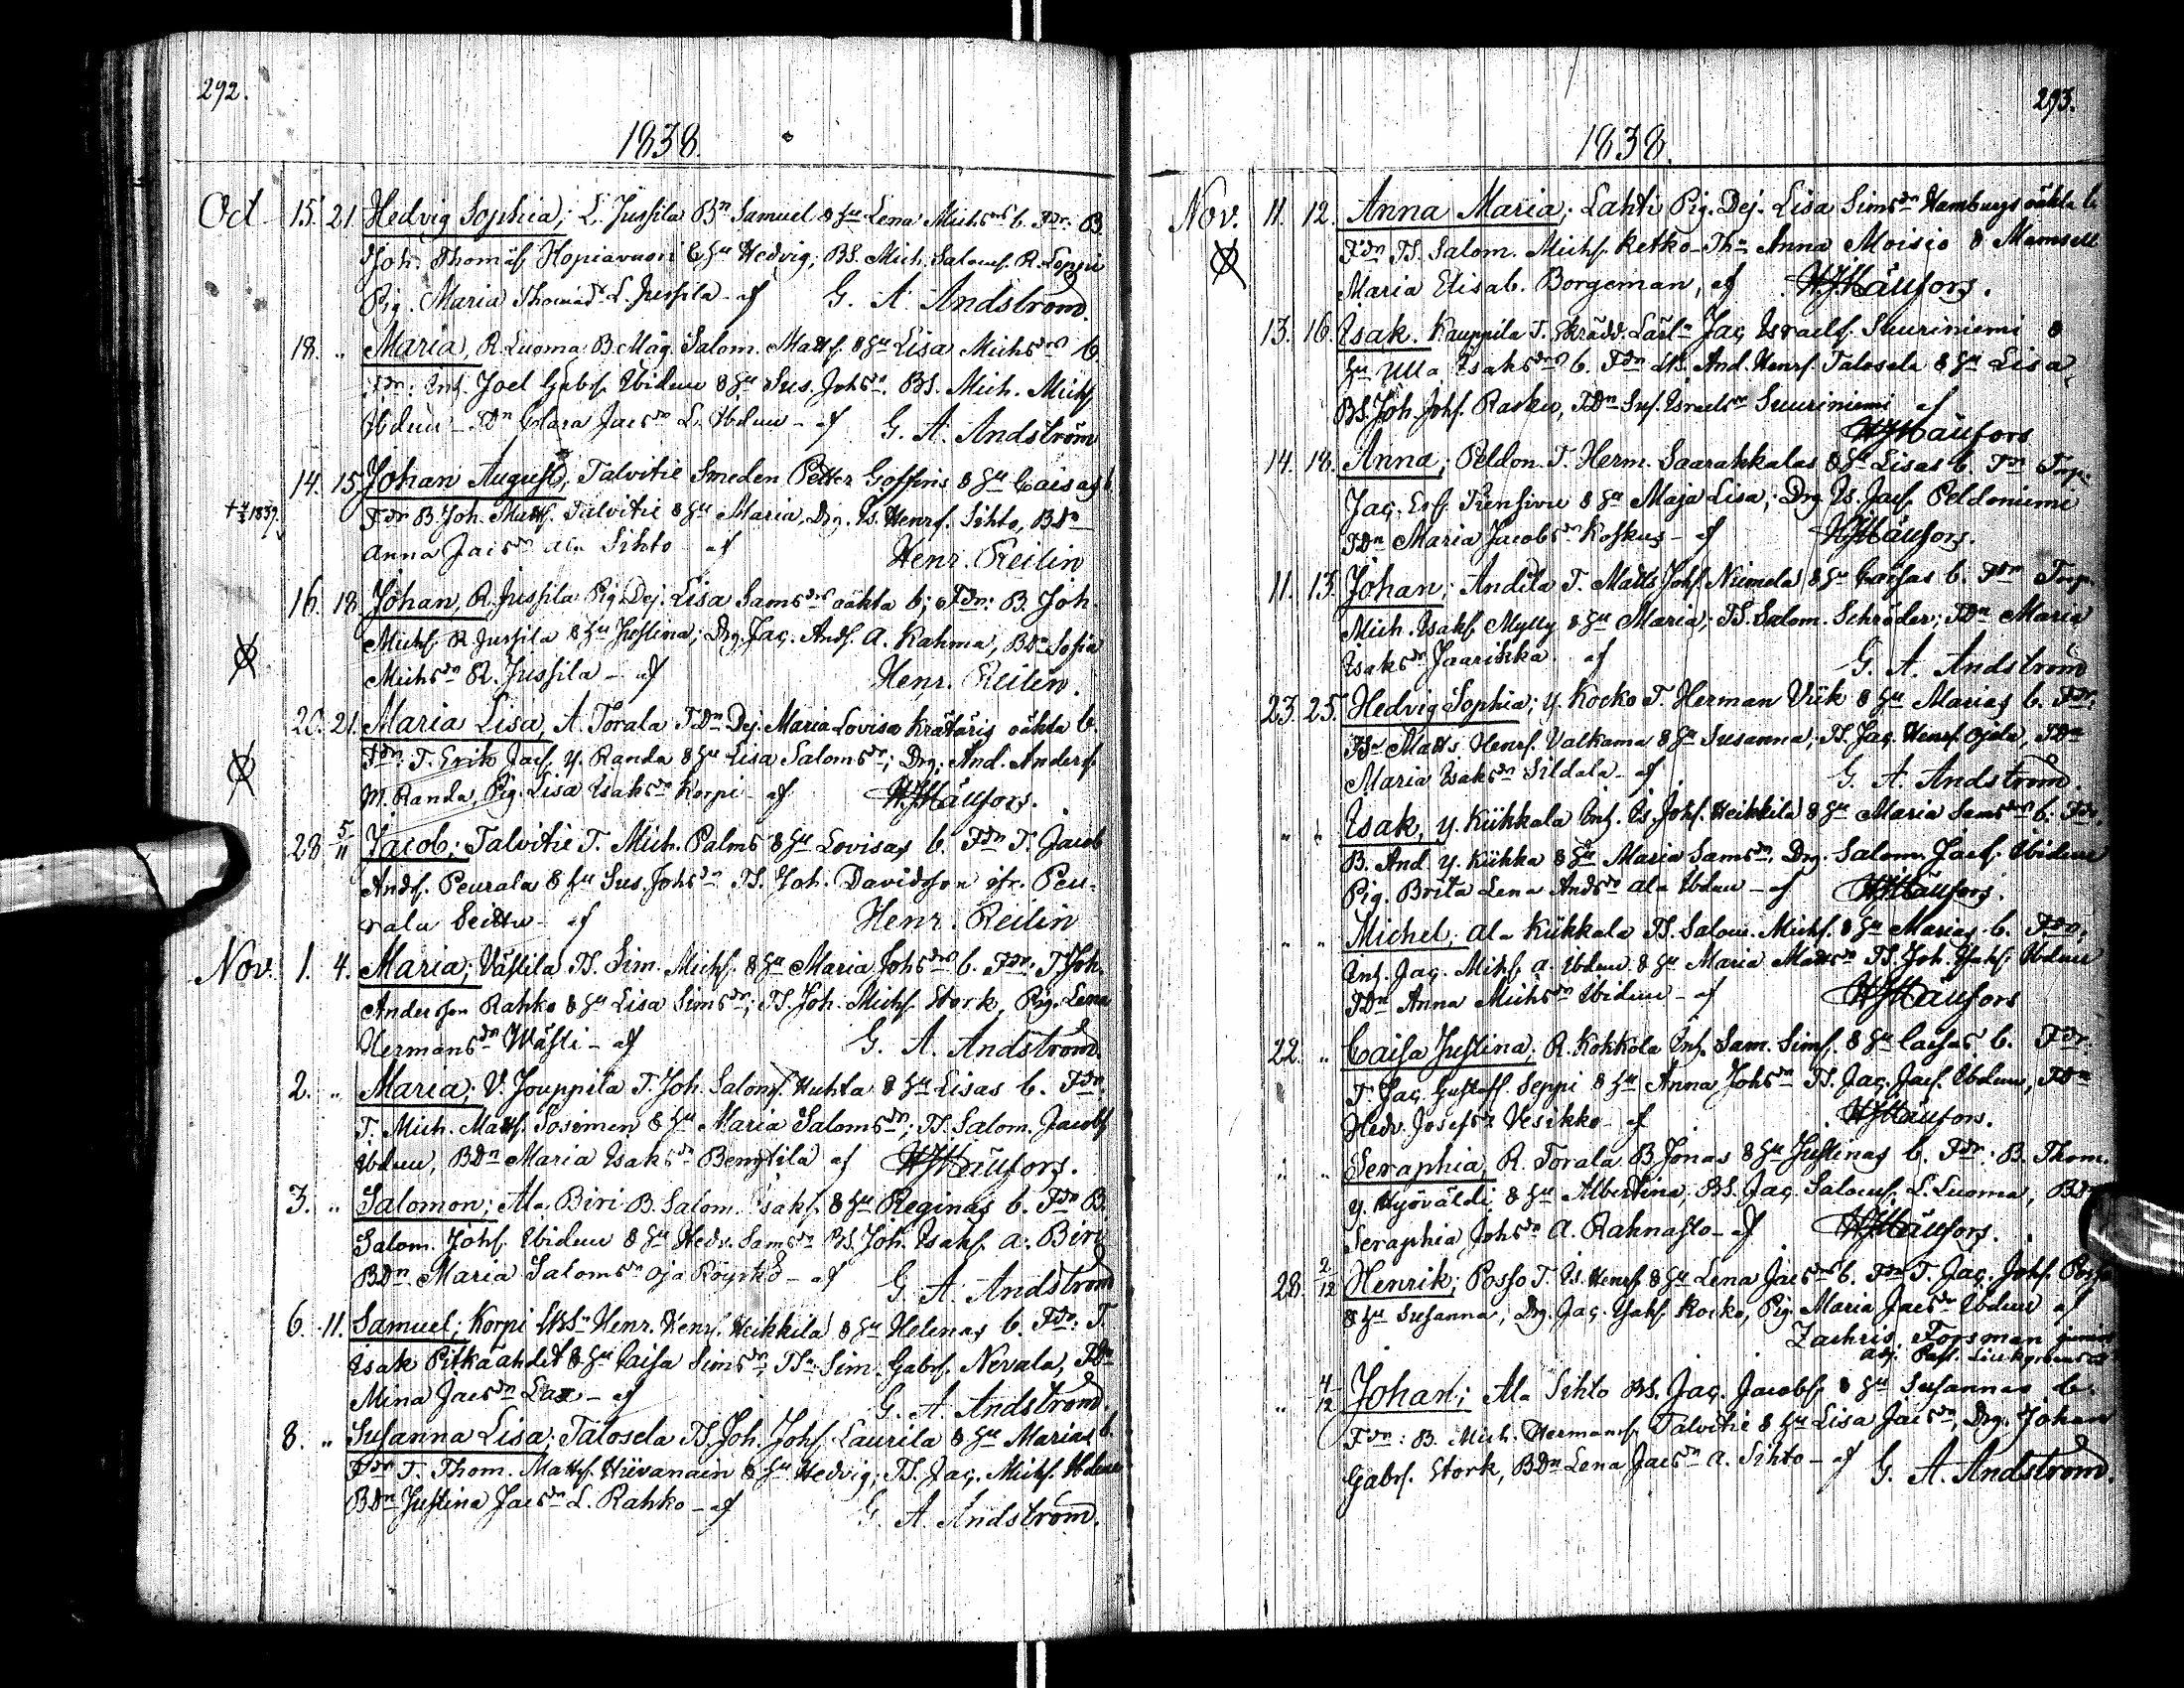 292.
1838.
Oct 15. 21. Hedvig Sophia; L. Jussila Bn Samuel & hu Lena Michsdrs b. Fdr: B.
Joh. Thomæs Hopiavuori & hu Hedvig; BS. Mich. Salomss. R. Loppi
Pig. Maria Thomædr L. Jussila - af G. A. Andström.
18. " Maria, R. Luoma B. Måg. Salom. Mattss. & hu Lisa Michsdrs b.
Fdr: Inh. Joel Gabrss. Ibidem & hu Sus. Johsdr. BS. Mich. Michss.
Ibdem - TDr Clara Jacsdr L. Ibdem - af G. A. Andström
14. 15. Johan August, Talvitie Smeden Petter Goffins & hu Caisas b.
Fdr B. Joh. Mattss. Talvitie & hu Maria, Drg. Is. Henrss. Sihto, BDr
1839.
Anna Jacsdr Ala Sihto - af Henr. Reilin
16. 18. Johan, R. Jussila Pig. Dej. Lisa Samsdrs oäkta b; Fdr: B. Joh.
Michss. R. Jussila & hu Justina; Drg. Jac. Andss. A. Kahma, BDr Sofia
Michsdr R. Jussila - af Henr. Reilin.
20. 21. Maria Lisa, A. Torala TDr Dej. Maria Lovisa Krätäris oäkta b.
Fdr: T. Erik Jacss. Y. Randa & hu Lisa Salomsdr; Drg. And. Anderss.
M. Randa, Pig. Lisa Isaksdr Korpi - af
28. 5/11 Jacob; Talvitie T. Mich. Palms & hu Lovisas b. Fdr T. Jacob
Andss. Peurala & hu Sus. Johsdr TS. Joh. Davidsson Peu-
rala - af Henr. Reilin
Nov. 1. 4. Maria; Västila TS. Sim. Michss. & hu Maria Johsdrs b. Fdr: T. Joh.
Andersson Rahko & hu Lisa Simsdr; TS. Joh. Michss. Stork, Pig. Lena
Hermansdr Wästi - af G. A. Andström.
2. " Maria; V. Jouppila T. Joh. Salomss. Huhta & hu Lisas b. Fdr.
T. Mich. Mattss. Sosimen & hu Maria Salomsdr; TS. Salom. Jacobss.
Ibdem, BDr Maria Isaksdr Bengtila af
3. " Salomon; Ala Biri B. Salom. Isakss. & hu Reginas b. Fdr B.
Salom. Johss. Ibidem & hu Hedv. Samsdr BS. Joh. Isakss. A. Biri
BDr. Maria Salomsdr Oja Röyskö - af G. A. Andström
6. 11. Samuel; Korpi Henr. Henrss. Heikkilä & hu Helenas b. Fdr: T.
Isak Pitkäahdet & hu Caisa Simsdr; Sim. Gabrss. Nevala, TDr
Mina Jacsdr Lax - af G. A. Andström.
8. " Susanna Lisa; Talosela TS. Joh. Johss. Laurila & hu Marias b.
Fdr T. Thom. Mattss. Hiivanain & hu Hedvig; TS. Jac. Michss. Ibdem
BDr Justina Jacsdr L. Rahko - af G. A. Andström.
293.
1838.
Nov. 11. 12. Anna Maria; Lahti Pig. Dej. Lisa Simsdr Hamburgs oäkta b.
Fdr TS. Salom. Michss. Ketko - Anna Moisio & Mamsell
Maria Elisab. Borgeman, af
13. 16. Isak. Kauppila T. Skrädd. Lärln Jac. Israelss. Suuriniemi &
hu Ulla Isaksdrs b. Fdr And. Henrss. Talosela & hu Lisa,
BS. Joh. Johss. Rasku, TDr Sus. Israelsdr Suuriniemi af
14. 18. Anna; Peldon. T. Herm. Saarakkalas & hu Lisas b. Fdr Torp.
Jac. & hu Maja Lisa; Drg. Is. Jacss. Peldoniemi
TDr Maria Jacobsdr Koskus - af
11. 13. Johan; Andila T. Matts Johss. Niemelä & hu Caisas b. Fdr Torp.
Mich. Isakss. Mylly & hu Maria; TS. Salom. Schröder; TDr Maria
Isaksdr Jaarikka. af G. A. Andström
23. 25. Hedvig Sophia; Y. Kocko T. Herman Viik & hu Marias b. Fdr:
Matts Henrss. Valkama & hu Susanna; TS. Jac. Henrss. Ojala, TDr
Maria Isaksdr Sildala - af G. A. Andström.
" " Isak, Y. Kiikkala Inh. Is. Johss. Heikkilä & hu Maria Samsdrs b. Fdr.
B. And. Y. Kiikka & hu Maria Samsdr, Drg. Salom. Jacss. Ibidem
Pig. Brita Lena Andsdr Ala Ibdem - af
" " Michel; Ala Kiikkala TS. Salom. Michss. & hu Marias b. Fdr;
Inh. Jac. Michss. A. Ibdem & hu Maria Mattsdr TS. Joh. Isakss. Ibdem
TDr Anna Michsdr Ibidem - af
22. " Caisa Justina; R. Kokkola Inh. Sam. Simss. & hu Caisas b. Fdr.
T. Jac. Gustaff. Seppi & hu Anna Johsdr TS. Jac. Jacss. Ibdem, TDr
Hedv. Josefsdr Vesikko - af
" " Seraphia, R. Torala B. Jonas & hu Justinas b. Fdr: B. Thom.
Y. Hyövälti & hu Albertina; BS. Jac. Salomss. L. Luoma, BDr
Seraphia Johsdr A. Rahnasto - af
28. 2/12 Henrik; Posso T. Is. Henrss. & hu Lena Jacsdrs b. Fdr T. Jac. Johss. Posso
& hu Susanna; Drg. Jac. Isakss. Kocko, Pig. Maria Jacsdr Ibdem af
Zachris Forsman junior
adj. Past.
" 4/12 Johan; Ala Sihto BS. Jac. Jacobss. & hu Susannas b.
Fdr: B. Mich. Hermanss. Talvitie & hu Lisa Jacsdr, Drg. Johan
Gabrss. Stork, BDr Lena Jacsdr A. Sihto - af G. A. Andström.